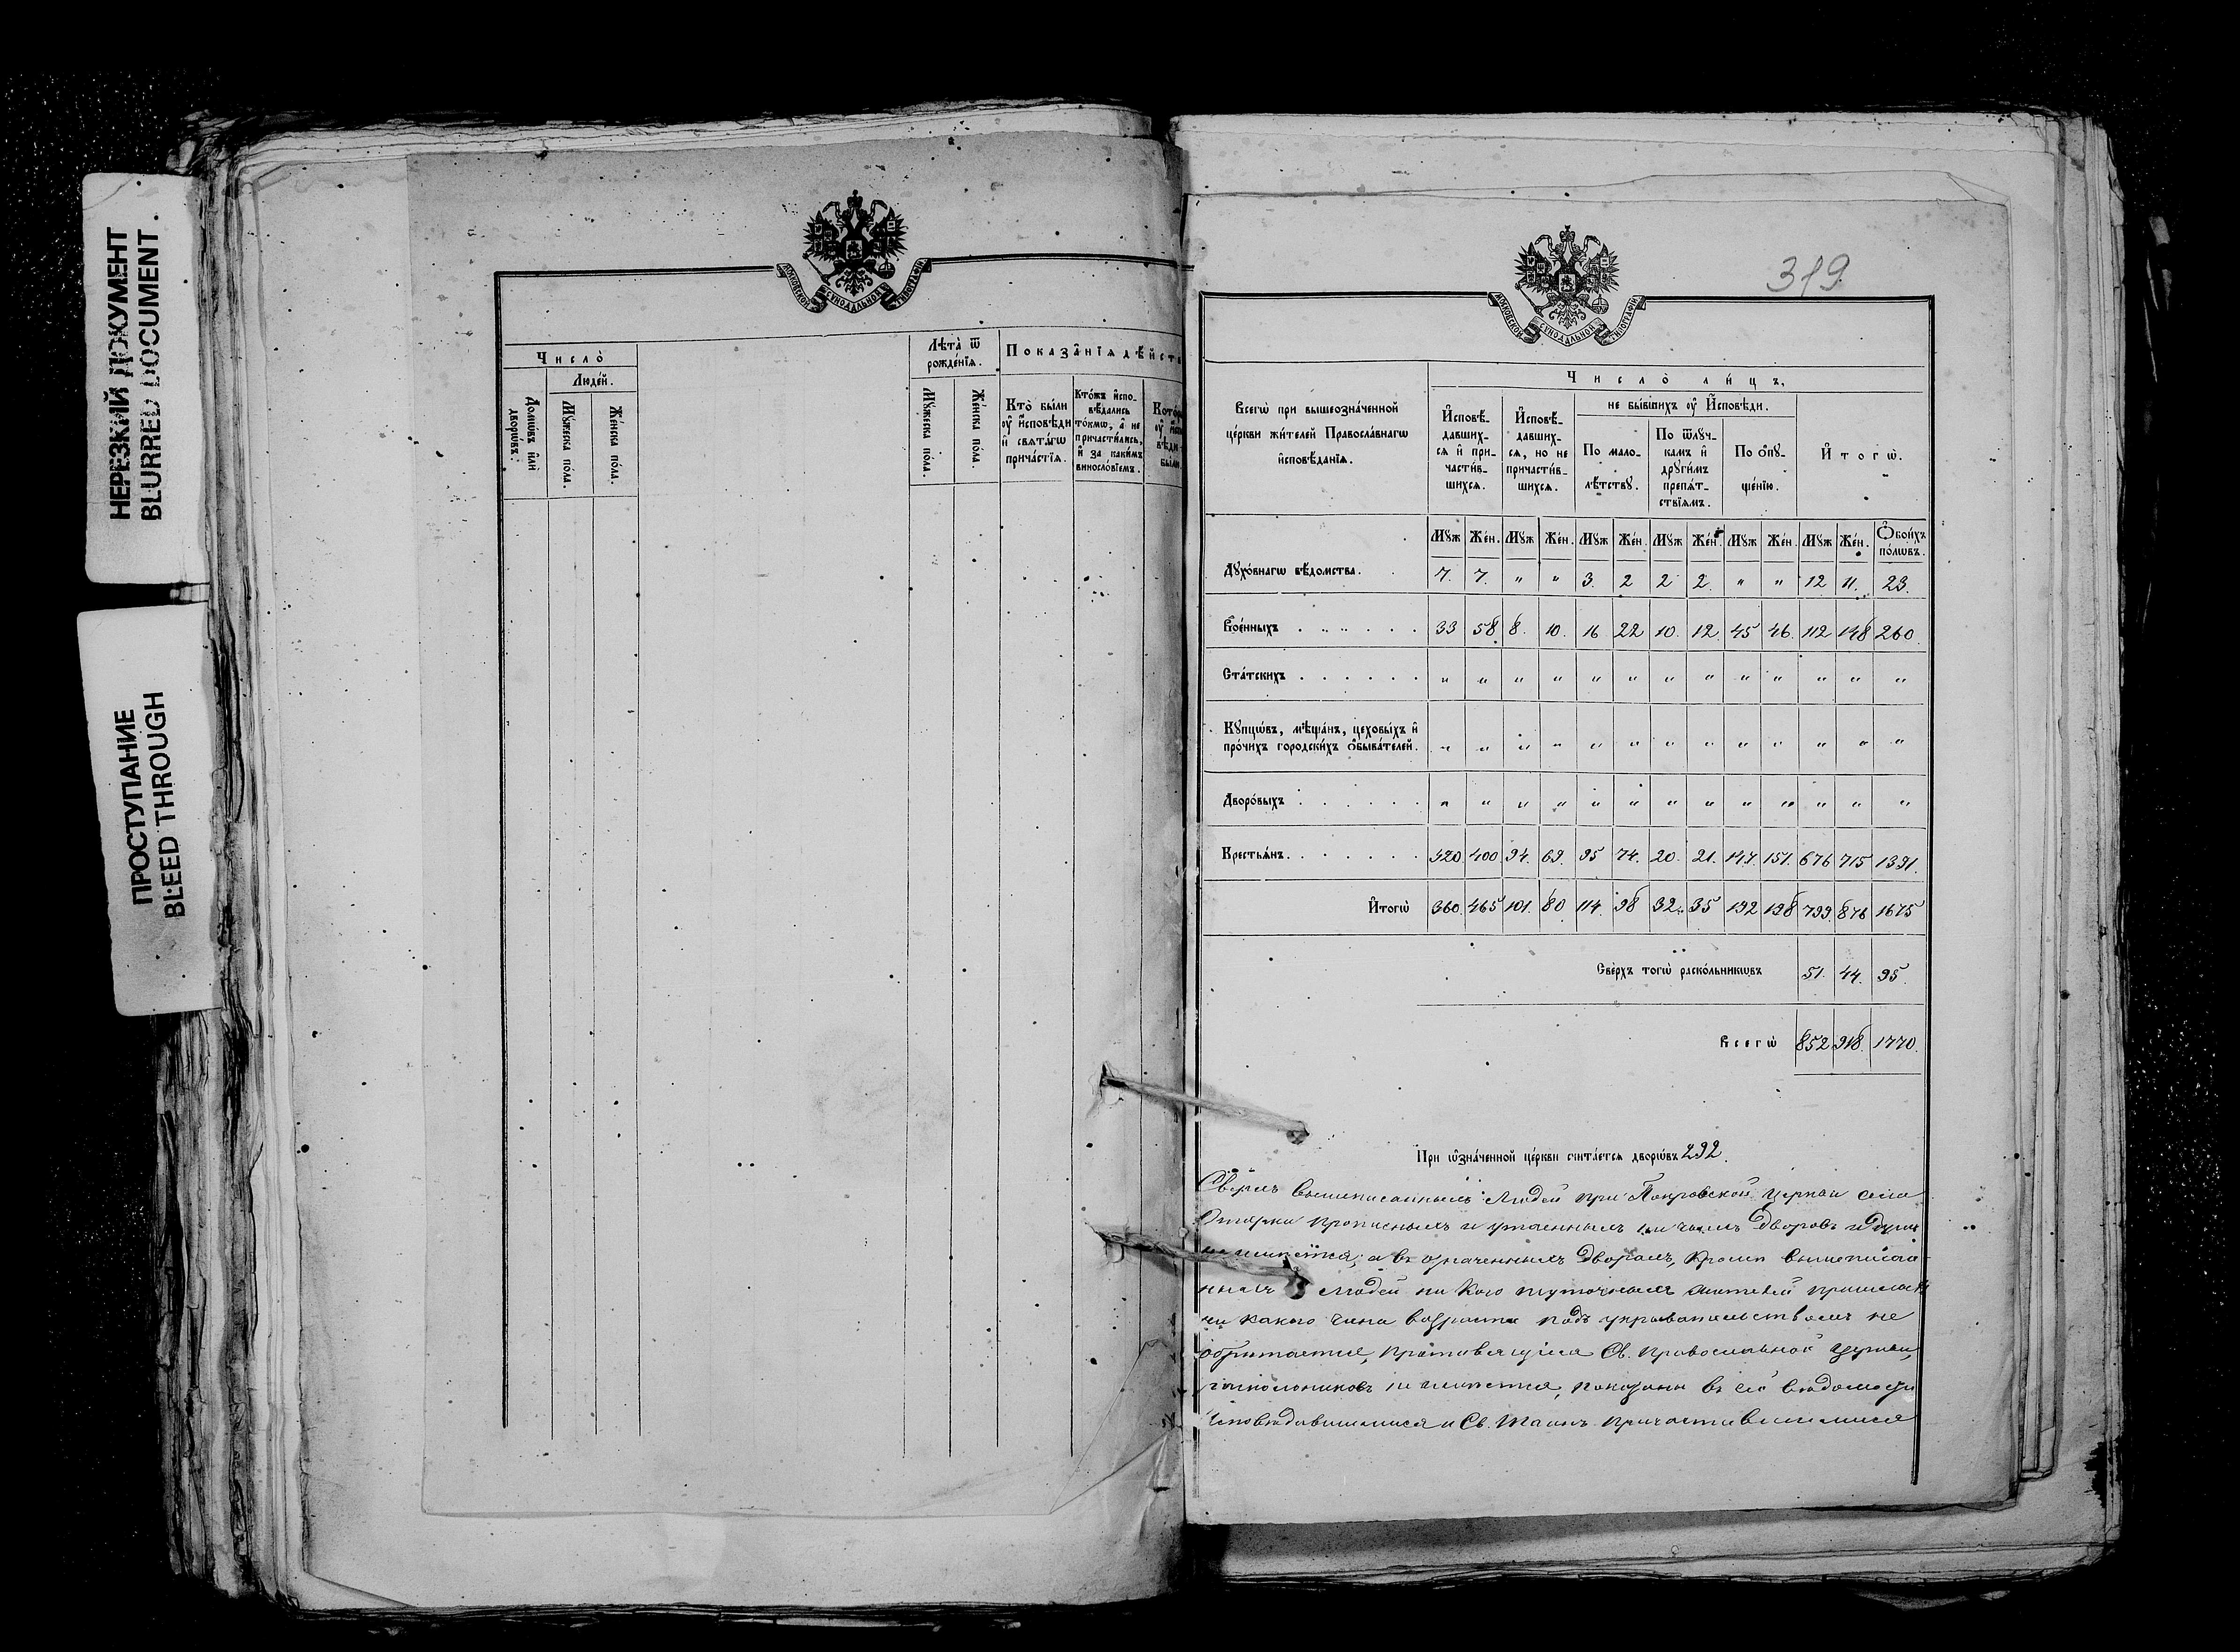 НЕРЕЗКИЙ ДОКУМЕНТ
BLURRED DOCUMENT.
ПРОСТУПАНИЕ
BLEED THROUGH
МОСКОВСКОЙ СѴНОДАЛЬНОЙ ТИПОГРАФІИ
Число̀
Люде́й.
Домѡ́въ и҆лѝ дворѡ́въ.
Мꙋ́жеска по́ла.
Же́нска по́ла.
Лѣ́та ѿ рожде́нїѧ.
Мꙋ́жеска по́ла.
Же́нска по́ла.
Показа̑нїѧ дѣ́йст
Кто̀ бы́ли ᲂу҆ И҆сповѣ́ди и҆ свѧта́гѡ прича́стїѧ.
Кто́жъ и҆сповѣ́дались то́кмѡ, а҆ не причасти́лись, и҆ за каки́мъ винослѡ́вїемъ.
МОСКОВСКОЙ СѴНОДАЛЬНОЙ ТИПОГРАФІИ
319
Всегѡ̀ при вышеозна́ченной це́ркви жи́телей Правосла́внагѡ и҆сповѣ́данїѧ.
Число̀ ли́цъ.
И҆сповѣ́давшихсѧ и҆ причасти́вшихсѧ.
И҆сповѣ́давшихсѧ, но не причасти́вшихсѧ.
не бы́вшихъ ᲂу҆ И҆сповѣ́ди.
По малолѣ́тствꙋ.
По ѿлꙋ́чкамъ и҆ дрꙋги́мъ препѧ́тствїѧмъ.
По ѡ҆пꙋще́нїю.
И҆тогѡ̀.
Мꙋж Же́н. Мꙋж Же́н. Мꙋж Же́н. Мꙋж Же́н. Мꙋж Же́н. Мꙋж Же́н. Ѻ҆бои́хъ по́лѡвъ.
Дꙋхо́внагѡ вѣ́домства. 7. 7. " " 3. 2 2 2. " " 12 11. 23.
Вое́нныхъ 33 58 8. 10. 16 22 10. 12. 45 46. 112 148 260.
Ста́тскихъ " " " " " " " " " " " " "
Кꙋпцѡ́въ, мѣща́нъ, цеховы́хъ и҆
про́чихъ городски́хъ ѡ҆быва́телей. " " " " " " " " " " " " "
Дворо́выхъ " " " " " " " " " " " " "
Крестьѧ́нъ 320 400. 94. 69. 95 74. 20. 21. 147. 151. 676 715 1391.
И҆тогѡ̀ 360. 465 101. 80 114. 98 32. 35 192 198 799. 876 1675
Све́рхъ тогѡ̀ раско́льникѡвъ 51. 44. 95.
Всегѡ̀ 852 918. 1770.
При ѡ҆зна́ченной це́ркви счита́етсѧ дворѡ́въ 292.
Сверхъ вышеписанныхъ людей при Покровской церкви села
прописныхъ и утаенныхъ ни чьихъ дворовъ и душъ
не имѣется; а въ означенныхъ дворахъ, кромѣ вышеписан-
ныхъ людей ни кого
ни какого чина возраста подъ укрывательствомъ не
обрѣтается, Св. православной церкви,
раскольниковъ не имѣется, показаны въ сей вѣдомости
исповѣдавшимися и Св. Таинъ причастившимися